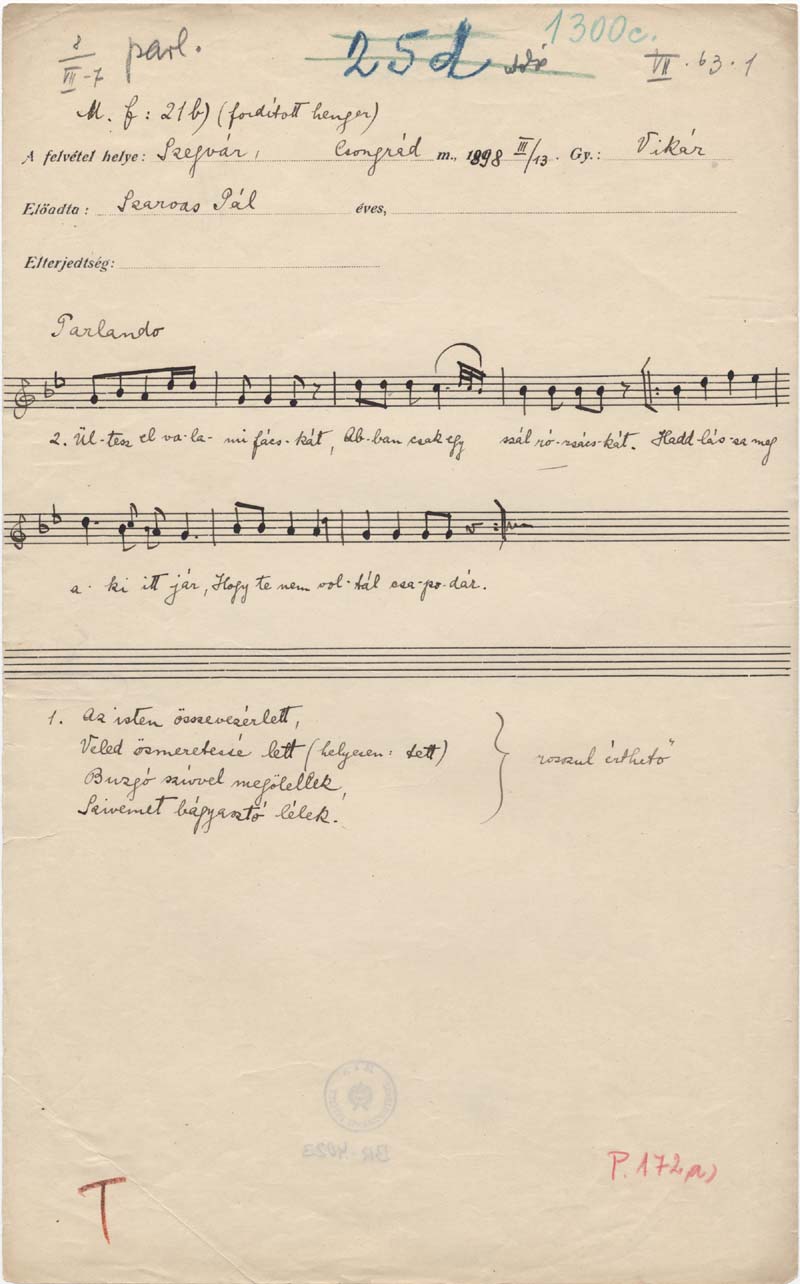 8
VII-7
parl.
25d
1300c.
VII.63.1
M. f: 21b) (fordított henger)
A felvétel helye: Szegvár, Csongrád m., 1898 III/13. Gy.: Vikár
Előadta: Szarvas Pál éves,
Elterjedtség:
Parlando
2. Ül-tesz el va-la-mi fács-kát, Ab-ban csak egy szál ró-zsács-kát. Hadd lás-sa meg
a-ki itt jár, Hogy te nem vol-tál csa-po-dár.
1. Az isten összevezérlett,
Veled ösmeretessé lett (helyesen: tett)
Buzgó szívvel megölellek,
Szivemet bágyasztó lélek.
rosszul érthető
BR-4023
P.172a)
T